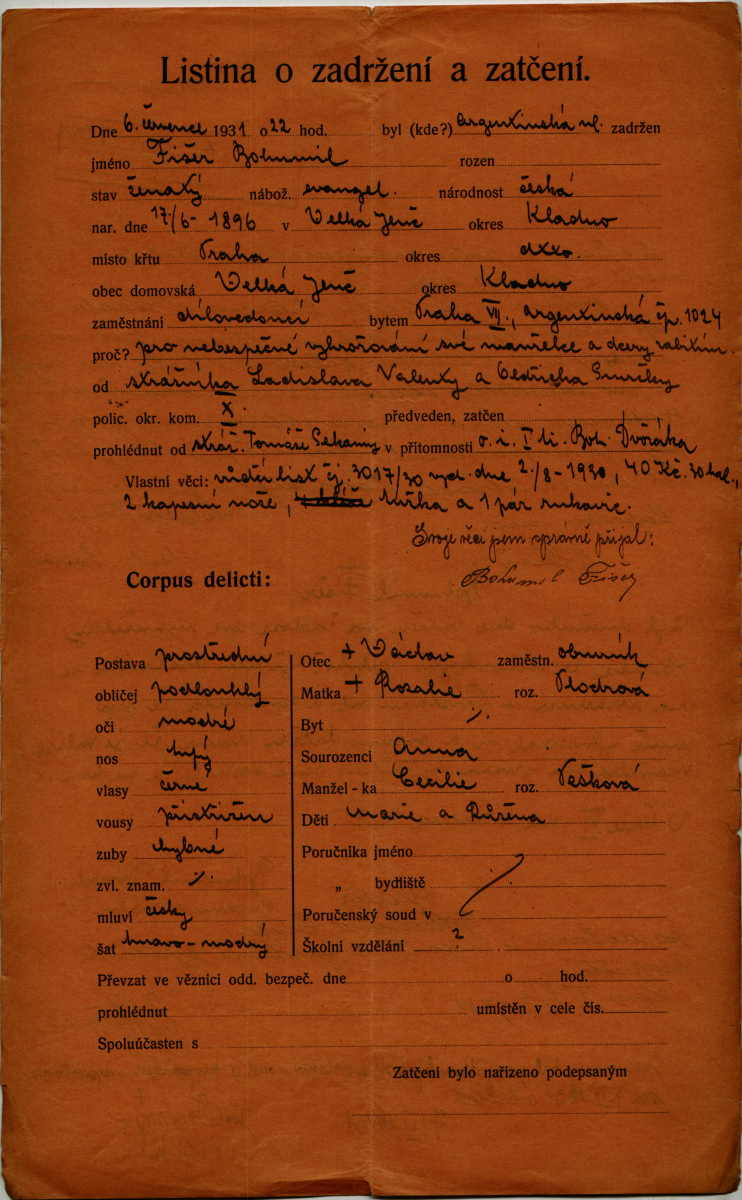 Listina o zadržení a zatčení.
Dne 6. červenec 1931 o 22 hod. byl (kde?) Argentinská ul. zadržen
jméno Fišer Bohumil rozen
stav ženatý nábož. evangel. národnost česká
nar. dne 17./6- 1896 v Velká Jenč okres Kladno
místo křtu Praha okres dtto.
obec domovská Velká Jenč okres Kladno
zaměstnání dílovedoucí bytem Praha VII., Argentinská čp. 1024
proč? pro nebezpečné vyhrožování své manželce a dcery zabitím.
od strážníka Ladislava Valenty a Oldřicha
polic. okr. kom. X. předveden, zatčen
prohlédnut od stráž. Tomáše v přítomnosti o. i. I tř. Boh. Dvořáka
Vlastní věci: vůdčí list čj. 3017/30 vyd. dne 2./8-1930, 40 Kč. 30 hal.,
2 kapesní nože, 4 klíče tužka a 1 pár rukavic.
Svoje věci jsem správně přijal:
Corpus delicti: Bohumil Fišer
Postava prostřední Otec + Václav zaměstn. obuvník
obličej podlouhlý Matka + Rozalie roz.
oči modré Byt ./.
nos tupý Sourozenci Anna
vlasy černé Manžel-ka Cecilie roz. Pešková
vousy přistřižen Děti Marie a Růžena
zuby chybné Poručníka jméno
zvl. znam. ./. „ bydliště
mluví česky Poručenský soud v
šat tmavo-modrý Školní vzdělání ?
Převzat ve věznici odd. bezpeč. dne o hod.
prohlédnut umístěn v cele čís.
Spoluúčasten s
Zatčení bylo nařízeno podepsaným